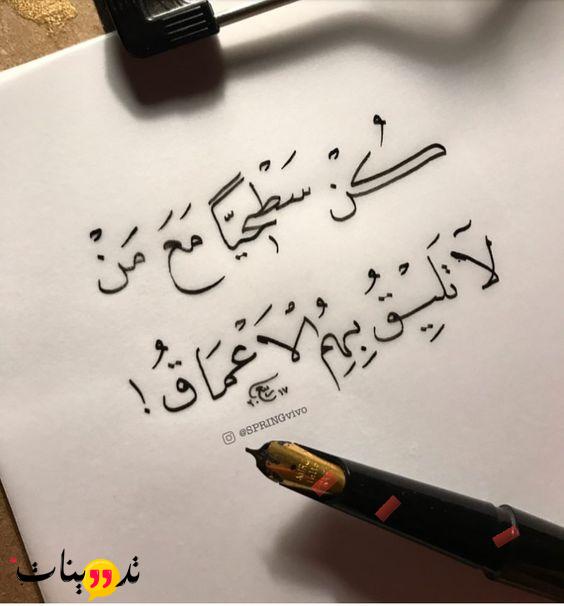 كُنْ سَطْحِيًّا مَعَ مَنْ
لَا تَلِيْقُ بِهِمُ الْأَعْمَاقُ !
٢٠١٧
@SPRINGvivo
تدوينات